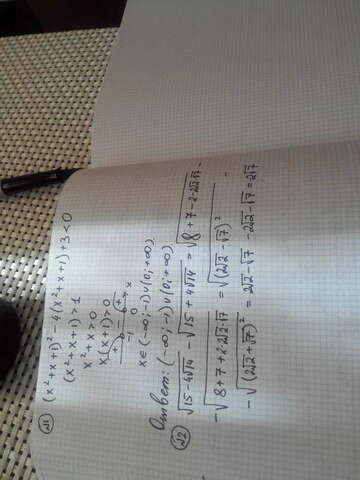 №1 (x²+x+1)² - 4(x²+x+1)+3<0
(x²+x+1)>1
x²+x>0
x(x+1)>0
+ - + x
-1 0
x∈(-∞;-1)∪(0;+∞)
Ответ: (-∞;-1)∪(0;+∞)
№2 √15-4√14 - √15+4√14 = √8+7-2·2√2·√7 -
-√8+7+2·2√2·√7 = √(2√2-√7)² -
-√(2√2+√7)² = 2√2-√7 -2√2-√7=2√7